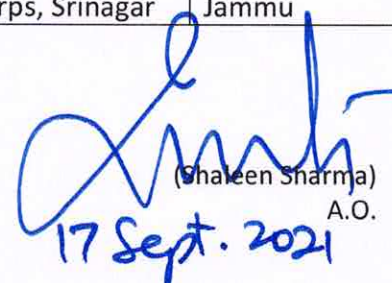 rps, Srinagar Jammu
(Shaleen Sharma)
A.O.
17 Sept. 2021